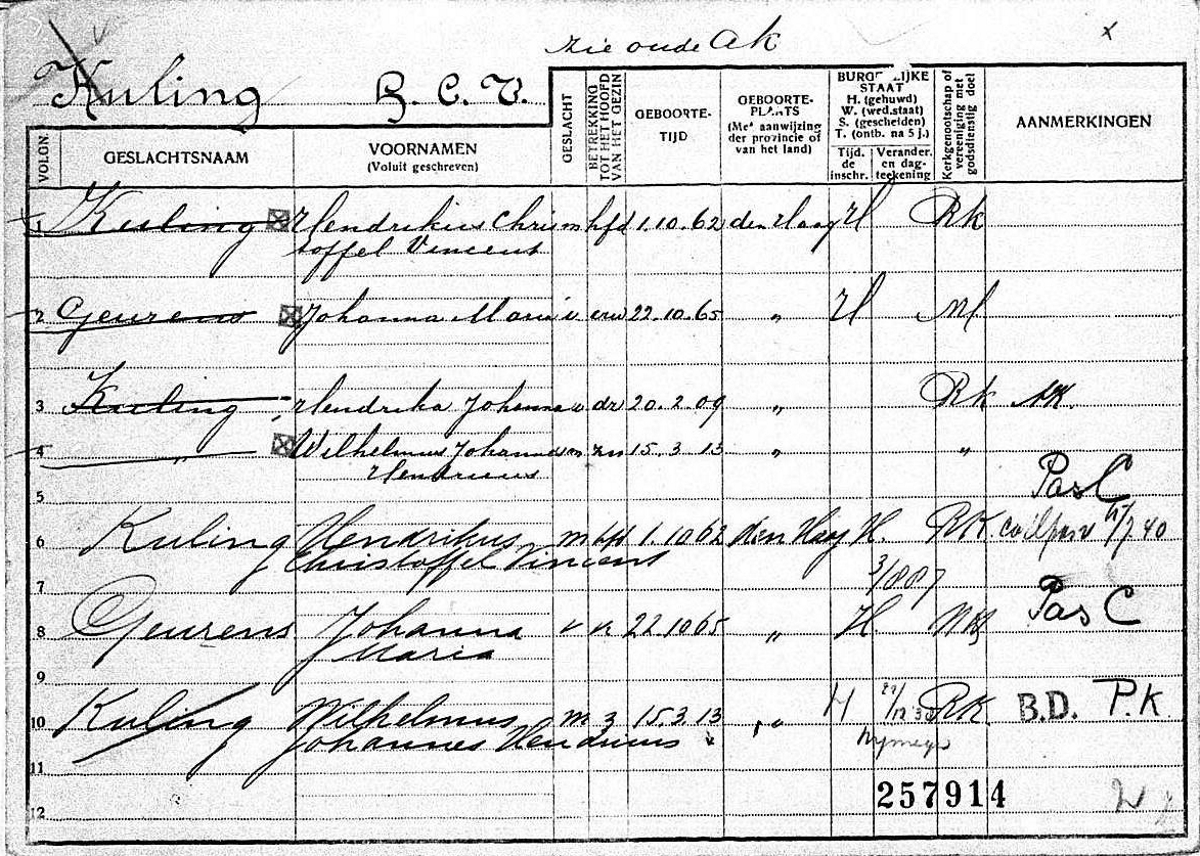 zie oude Ak
x
Kuling H. C. V.
VOLGN.
GESLACHTSNAAM
VOORNAMEN
(Voluit geschreven)
GESLACHT
BETREKKING TOT HET HOOFD VAN HET GEZIN
GEBOORTE-
TIJD
GEBOORTE-
PLAATS
(Met aanwijzing
der provincie of
van het land)
BURGERLIJKE
STAAT
H. (gehuwd)
W. (wed.staat)
S. (gescheiden)
T. (ontb. na 5 j.)
Tijd.
de
inschr.
Verander.
en dag-
teekening
Kerkgenootschap of
vereeniging met
godsdienstig doel
AANMERKINGEN
1 Kuling Hendrikus Chris m hfd 1.10.62 den Haag H RK
toffel Vincent
2 Geurens Johanna Maria v erw 22.10.65 " H NH
3 Kuling Hendrika Johanna v dr 20.2.09 " RK AK.
4 " Wilhelmus Johannes m zn 15.3.13 " "
Hendricus
5 Pas C
6 Kuling Hendrikus m hfd 1.10 62 den Haag H. RK. 40
Christoffel Vincent
7 3/1887 Pas C
8 Geurens Johanna v v. 22 10 65 " H NH
Maria
9
10 Kuling Wilhelmus m z 15.3.13 " H RK. B.D. P.K
Johannes Hendricus Nijmegen
11
257914
12